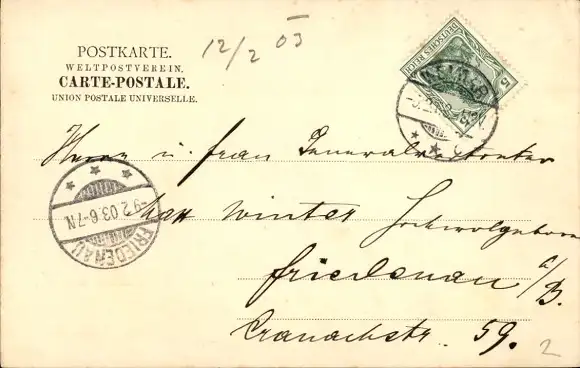 12/2 03
POSTKARTE.
WELTPOSTVEREIN.
CARTE-POSTALE.
UNION POSTALE UNIVERSELLE.
DEUTSCHES REICH
5
Herrn u. Frau Generaldirektor
von Winter Hochwolgeboren
Friedenau a/B.
Cranachstr. 59.
2
-9.2.03.6-7N.
FRIEDENAU